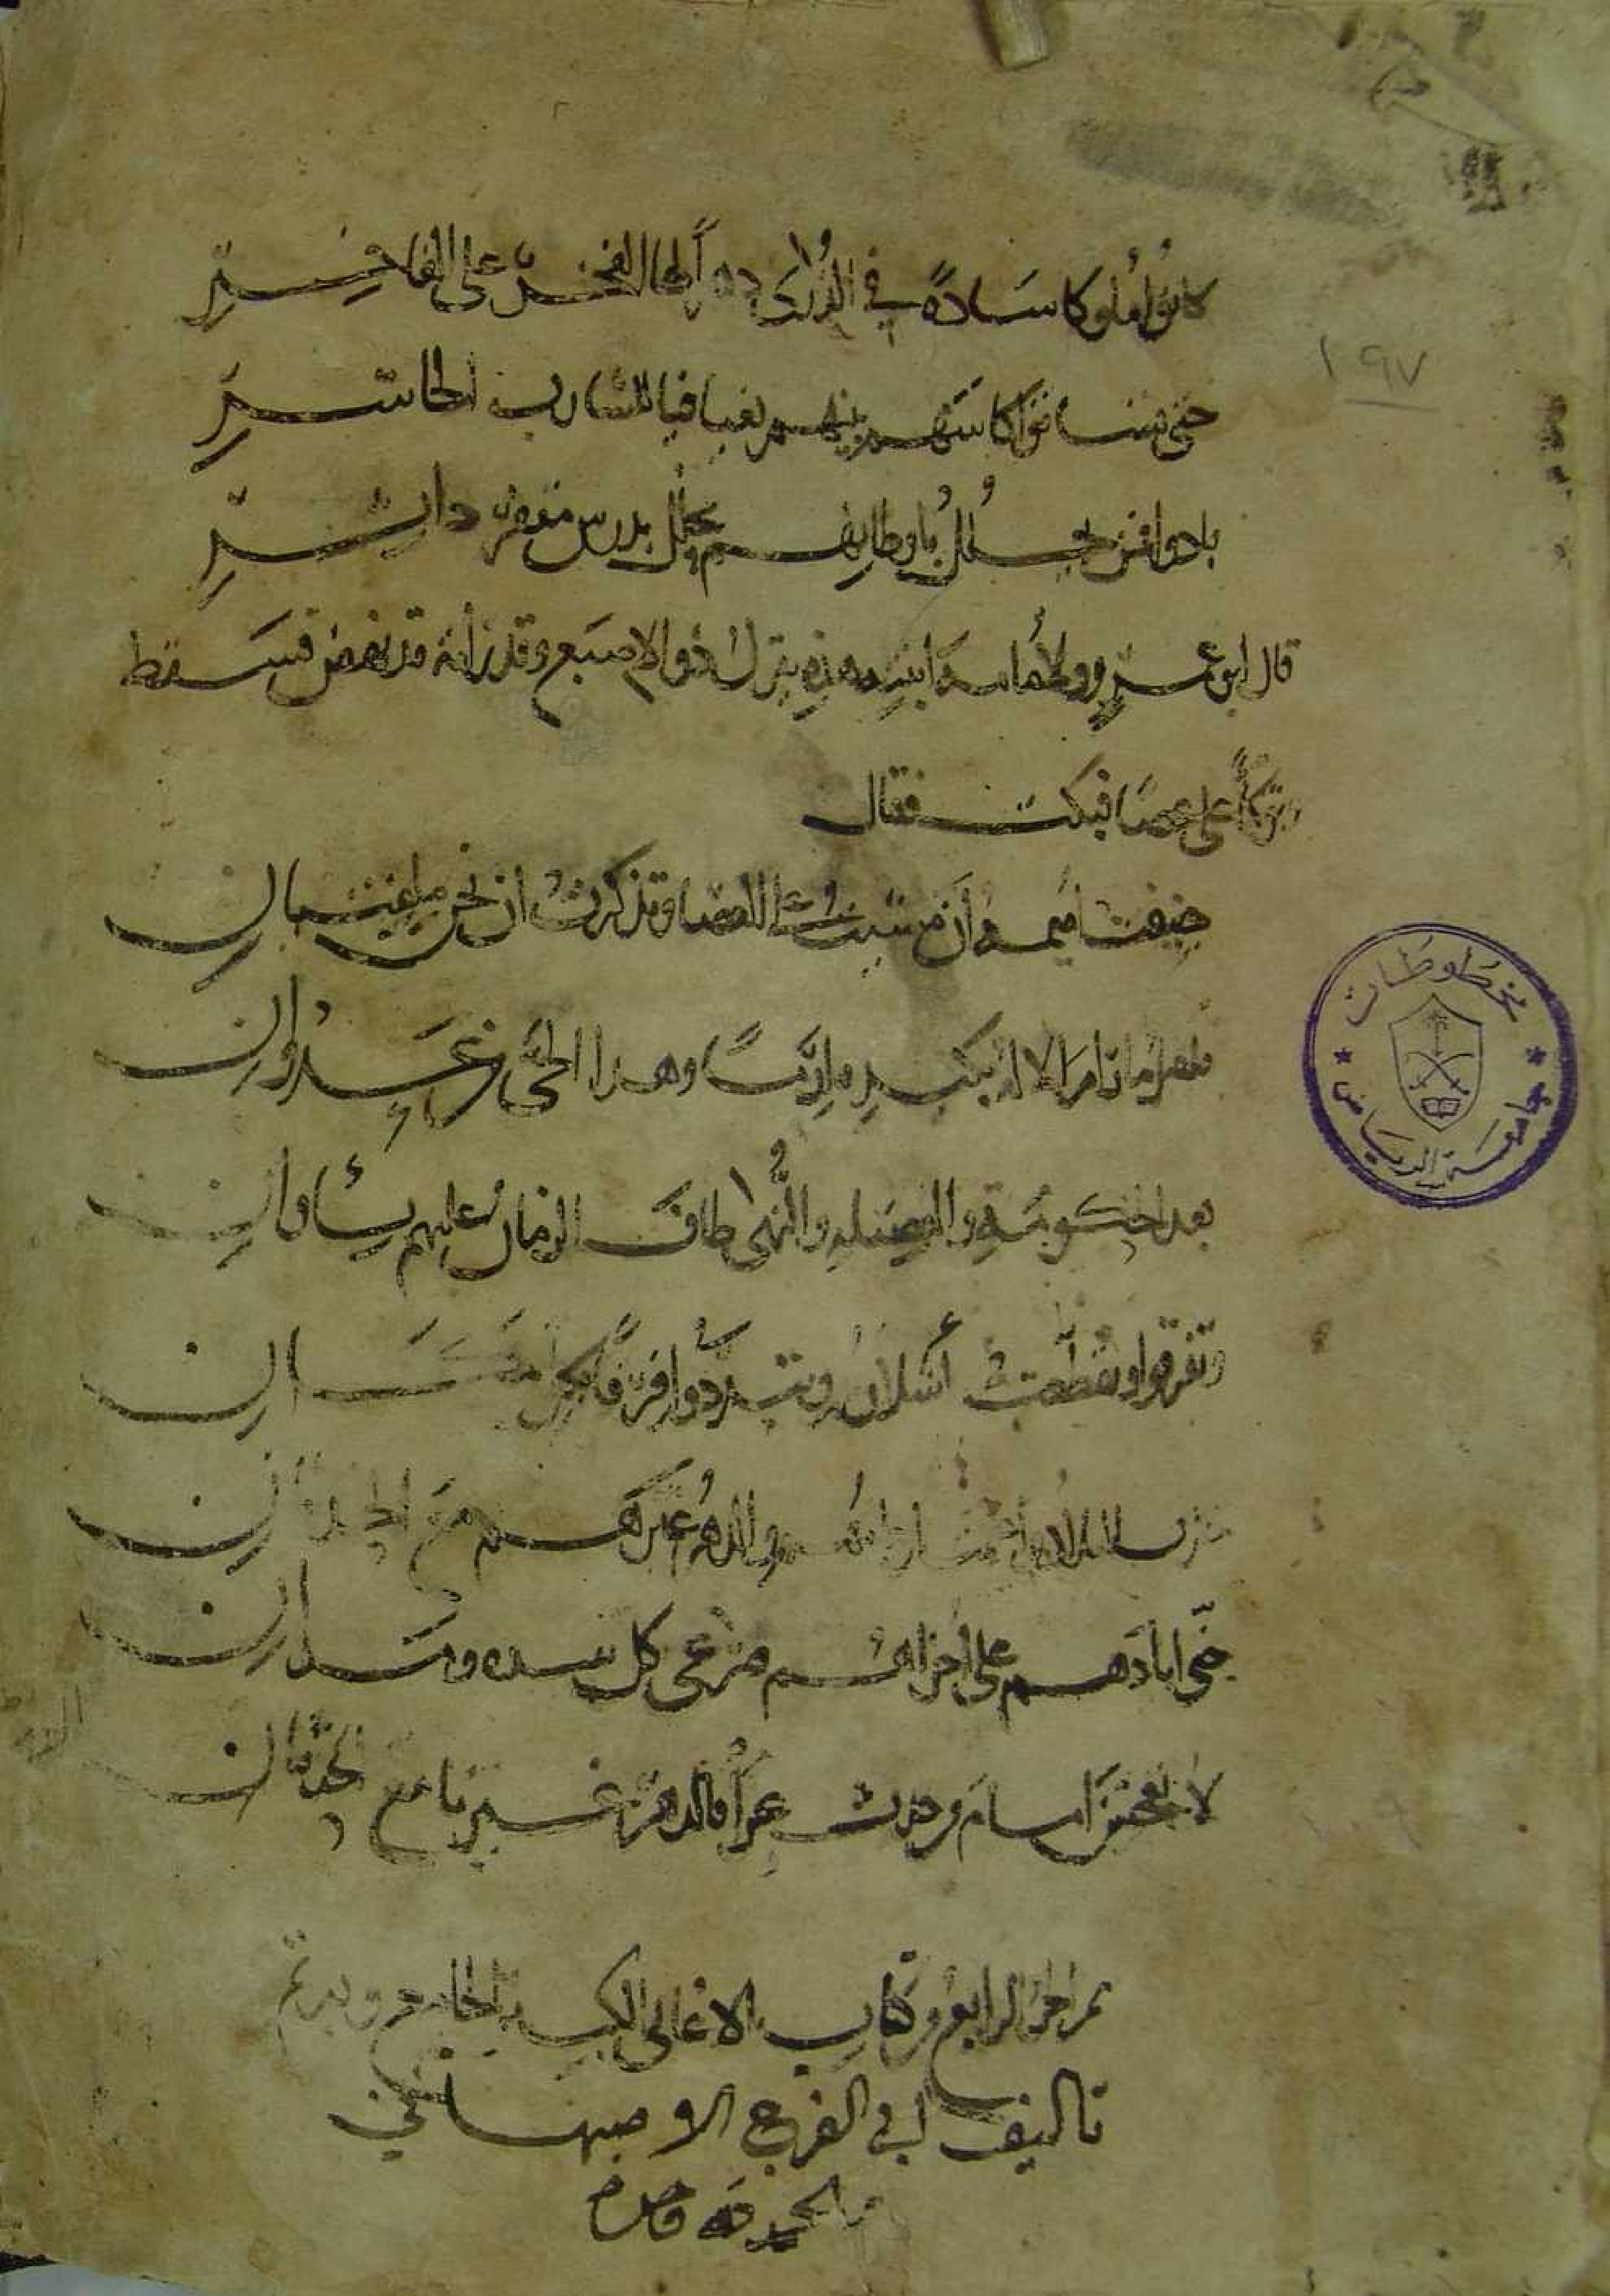 ١٩٧
كانوا ملوكا سادةً في الذرى دهراً لها الفخر على الفاخر
حتى تساقوا كاسهم بينهم بغيا فيا للشارب الخاسر
بادوا فمن يحلل باوطانهم يحلل برسم مقفر داثر
قال ابو عمرو ولامامة ابنته هذه يقول ذو الاصبع وقد راته قد نهض فسقط
وتوكأ على عصا فبكت فقال
جزعت اميمة أن مشيت على العصا وتذكرت اذ نحن ملفتيان
فلقبل ما رام الاله بكيده ارما وهذا الحي من عدوان
بعد الحكومة والفضيلة والنُّهى طاف الزمان عليهم باوان
وتفرقوا وتقطعت أشلاؤهم وتبددوا فرقا بكل مكان
البلاد والدهر غيرهم مع الحدثان
حتى ابادهم على اخراهم صرعى كل نقيرة ومكان
لا تعجبن امام من حدث عرا فالدهر غيرنا مع الحدثان
تم الجزء الرابع من كتاب الاغاني الكبير
تاليف ابي الفرج الاصبهاني
والحمد لله وحده
مخطوطات
جامعة الرياض